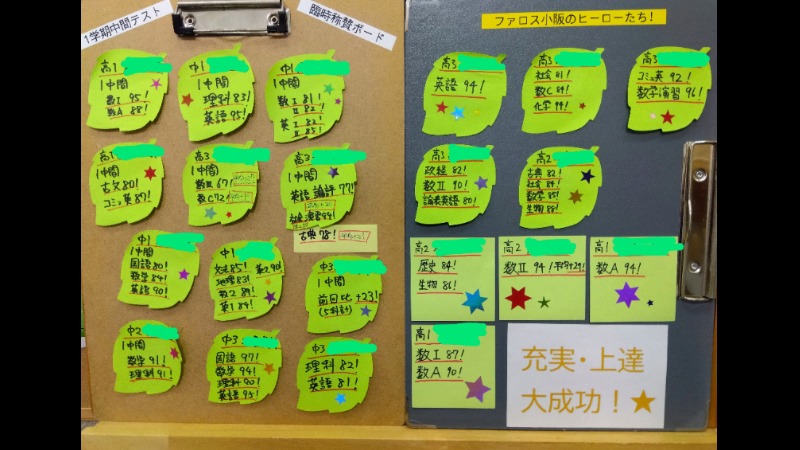 1学期中間テスト
臨時称賛ボード
高1
1中間
数I 95!
数A 88!
中1
1中間
理科 83!
英語 95!
中1
1中間
数I 81!
II 82!
英I 82!
II 85!
高1
1中間
古文 80!
コミュ英 87!
高3
1中間
数III 67!
数C 72!
高3
1中間
英語 論評 77!!
古典 78!
中1
1中間
国語 80!
数学 84!
英語 90!
中1
地理 83!
数2 89!
英1 84!
中3
1中間
前回比 +23!
(5科計)
中2
1中間
数学 91!
理科 91!
中3
国語 97!
数学 94!
理科 90!
英語 95!
中3
理科 82!
英語 81!
ファロス小阪のヒーローたち!
高3
英語 94!
高3
社会 81!
数C 84!
化学 94!
高3
コミュ英 92!
数学演習 96!
高3
政経 82!
数II 90!
論表英語 80!
高2
古典 82!
社会 84!
数学 85!
生物 88!
高2
歴史 84!
生物 86!
高2
数II 94!
高1
数A 94!
高1
数I 87!
数A 90!
充実・上達
大成功!★